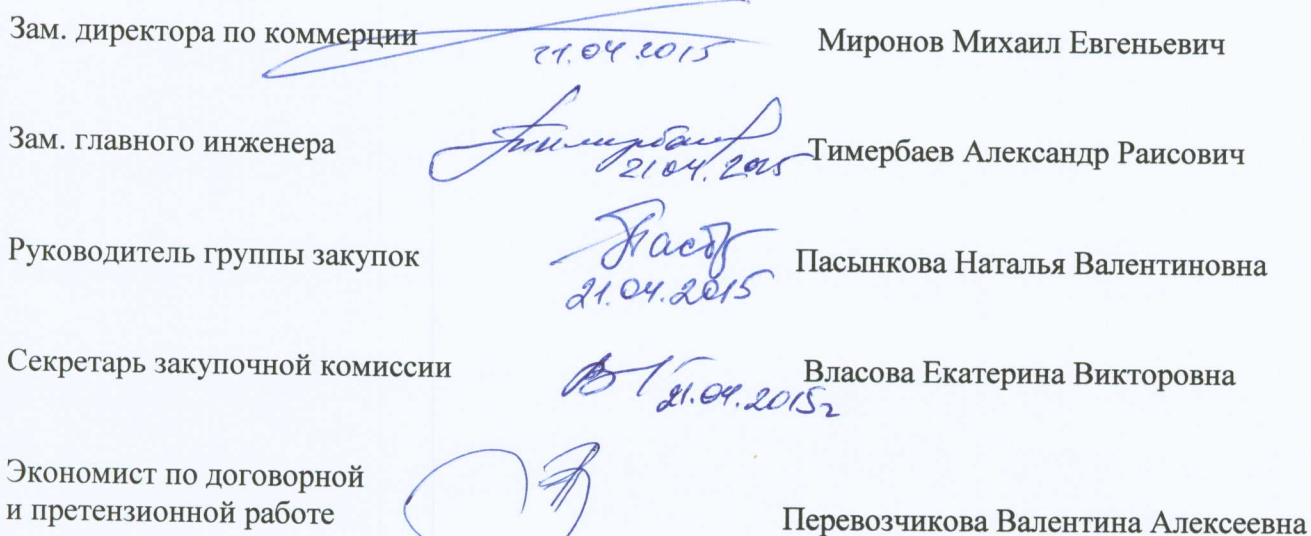 Зам. директора по коммерции 21.04.2015 Миронов Михаил Евгеньевич
Зам. главного инженера Тимербаев Александр Раисович
21.04.2015
Руководитель группы закупок Пасынкова Наталья Валентиновна
21.04.2015
Секретарь закупочной комиссии Власова Екатерина Викторовна
21.04.2015г
Экономист по договорной
и претензионной работе Перевозчикова Валентина Алексеевна